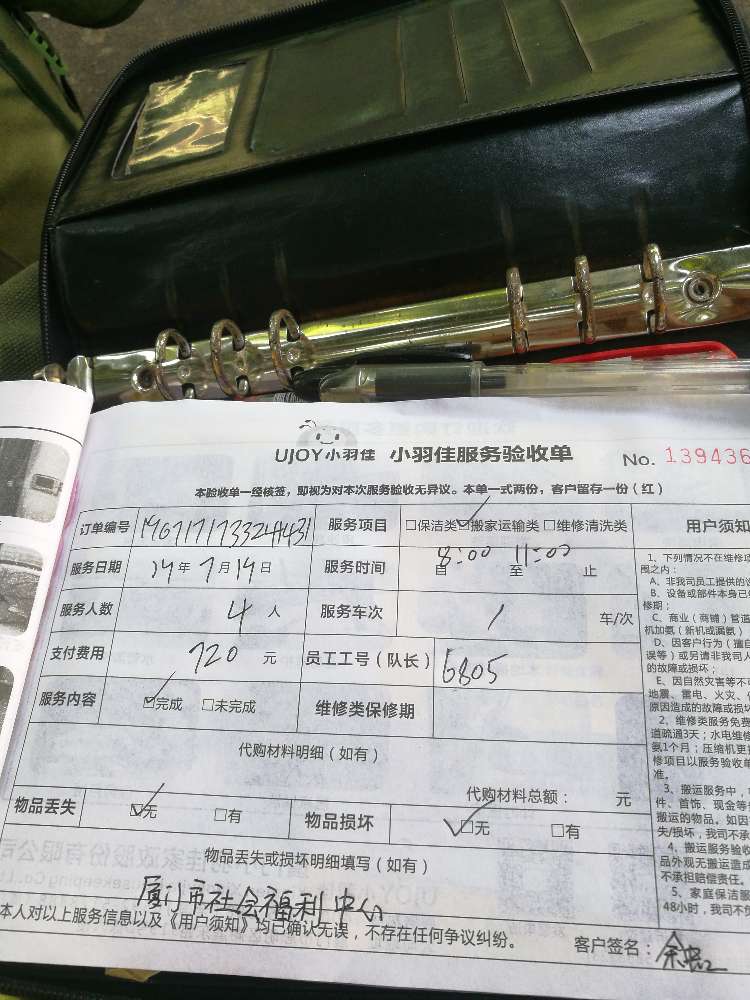 UJOY小羽佳 小羽佳服务验收单 No. 139436
本验收单一经核签，即视为对本次服务验收无异议。本单一式两份，客户留存一份（红）
订单编号 服务项目 □保洁类 ☑搬家运输类 □维修清洗类 用户须知
服务日期 19年7月19日 服务时间 自 8:00 至 11:00 止
服务人数 4 人 服务车次 1 车/次
支付费用 720 元 员工工号（队长） 6805
服务内容 ☑完成 □未完成 维修类保修期
代购材料明细（如有）
代购材料总额： 元
物品丢失 ☑无 □有 物品损坏 ☑无 □有
物品丢失或损坏明细填写（如有）
厦门市社会福利中心
本人对以上服务信息以及《用户须知》均已确认无误，不存在任何争议纠纷。 客户签名：
1、下列情况不在维修
围之内：
A、非我司员工提供的
B、设备或部件本身已
修期；
C、商业（商铺）管道
机加氨（新机或漏氨）
D、因客户行为（擅自
误等）或另请非我司人
的故障或损坏；
E、因自然灾害等不
地震、雷电、火灾、
原因造成的故障或损坏
2、维修类服务免费
道疏通3天；水电维修
氨1个月；压缩机更
修项目以服务验收单
准。
3、搬运服务中，
件、首饰、现金等
搬运的物品。如因
失/损坏，我司不承
4、搬运服务验收
品外观无搬运造成
不承担赔偿责任。
5、家庭保洁服
48小时，我司不